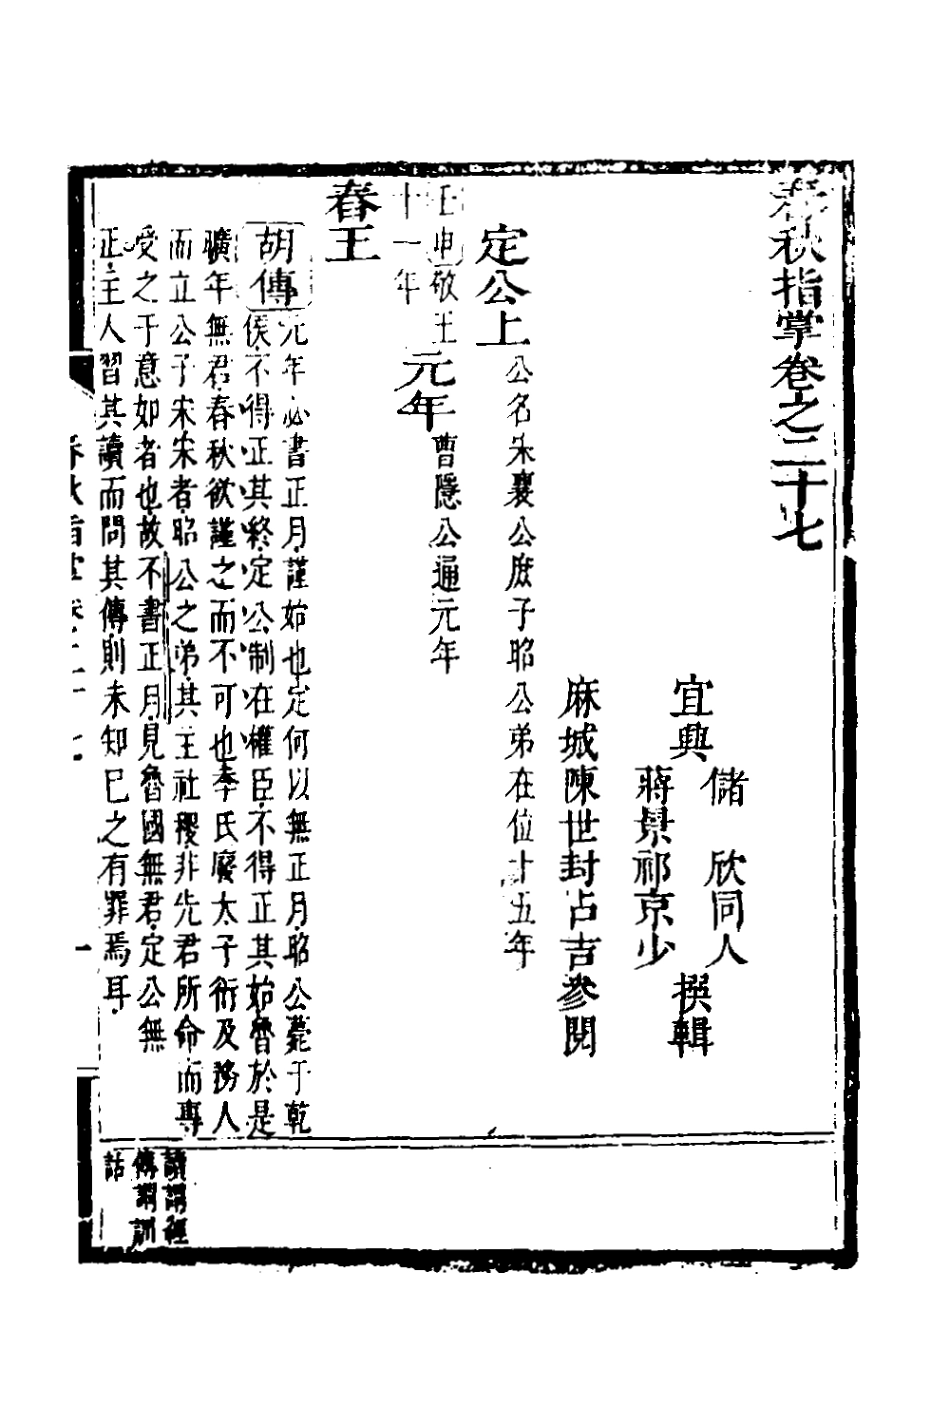 春秋指掌卷之二十七
宜興
儲　欣同人
蔣景祁京少
撰輯
麻城陳世封占吉參閱
定公上 公名宋襄公庶子昭公弟在位十五年
壬申敬王
十一年
元年 曹隱公通元年
春王
胡傳 元年必書正月謹始也定何以無正月昭公薨于乾
侯不得正其終定公制在權臣不得正其始魯於是
曠年無君春秋欲謹之而不可也季氏廢太子衍及務人
而立公子宋宋者昭公之弟其主社稷非先君所命而專
受之于意如者也故不書正月見魯國無君定公無
正主人習其讀而問其傳則未知已之有罪焉耳
讀謂經
傳謂訓
詁
春秋指掌卷二十七
一